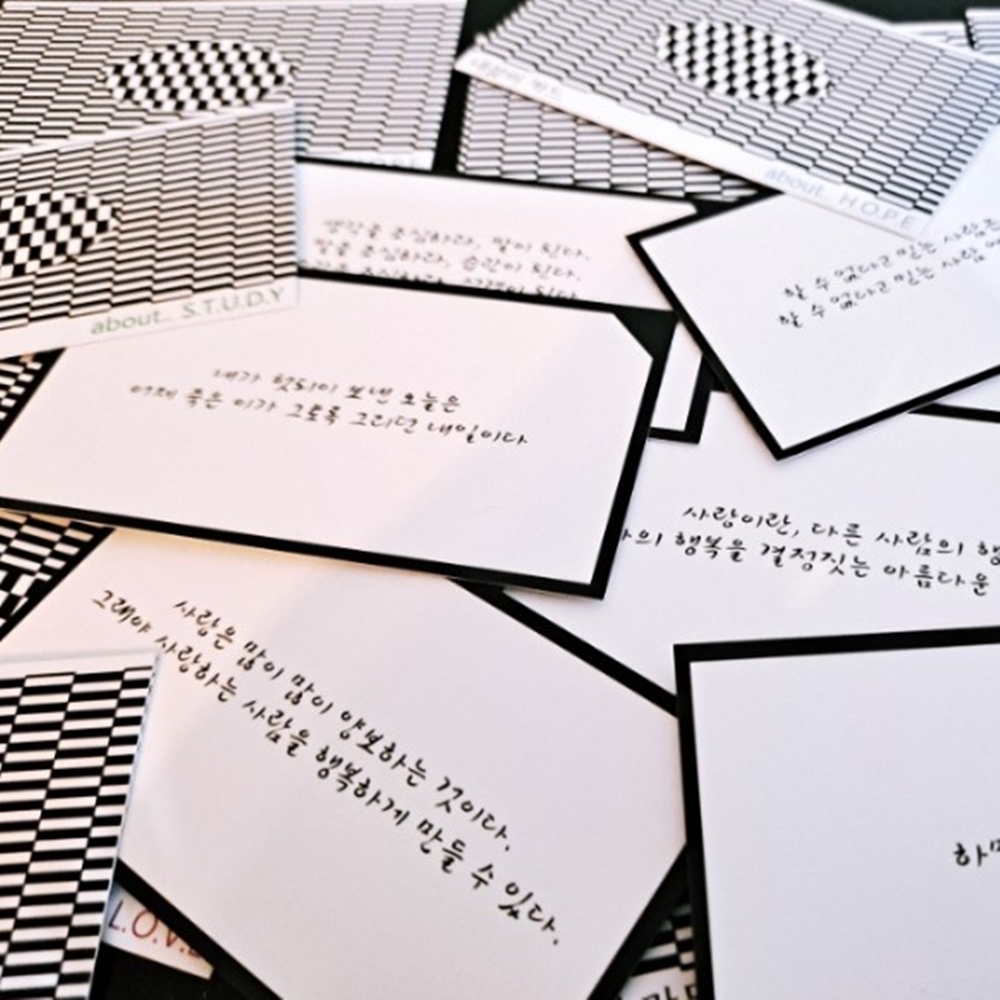 about.. H.O.P.E
about.. S.T.U.D.Y
생각을 조심하라, 말이 된다.
말을 조심하라, 습관이 된다.
할 수 있다고 믿는 사람은
할 수 없다고 믿는 사람
내가 헛되이 보낸 오늘은
어제 죽은 이가 그토록 그리던 내일이다
사랑이란, 다른 사람의 행
의 행복을 결정짓는 아름다운
사람은 많이 많이 양보하는 것이다.
그래야 사랑하는 사람을 행복하게 만들 수 있다.
L.O.V.